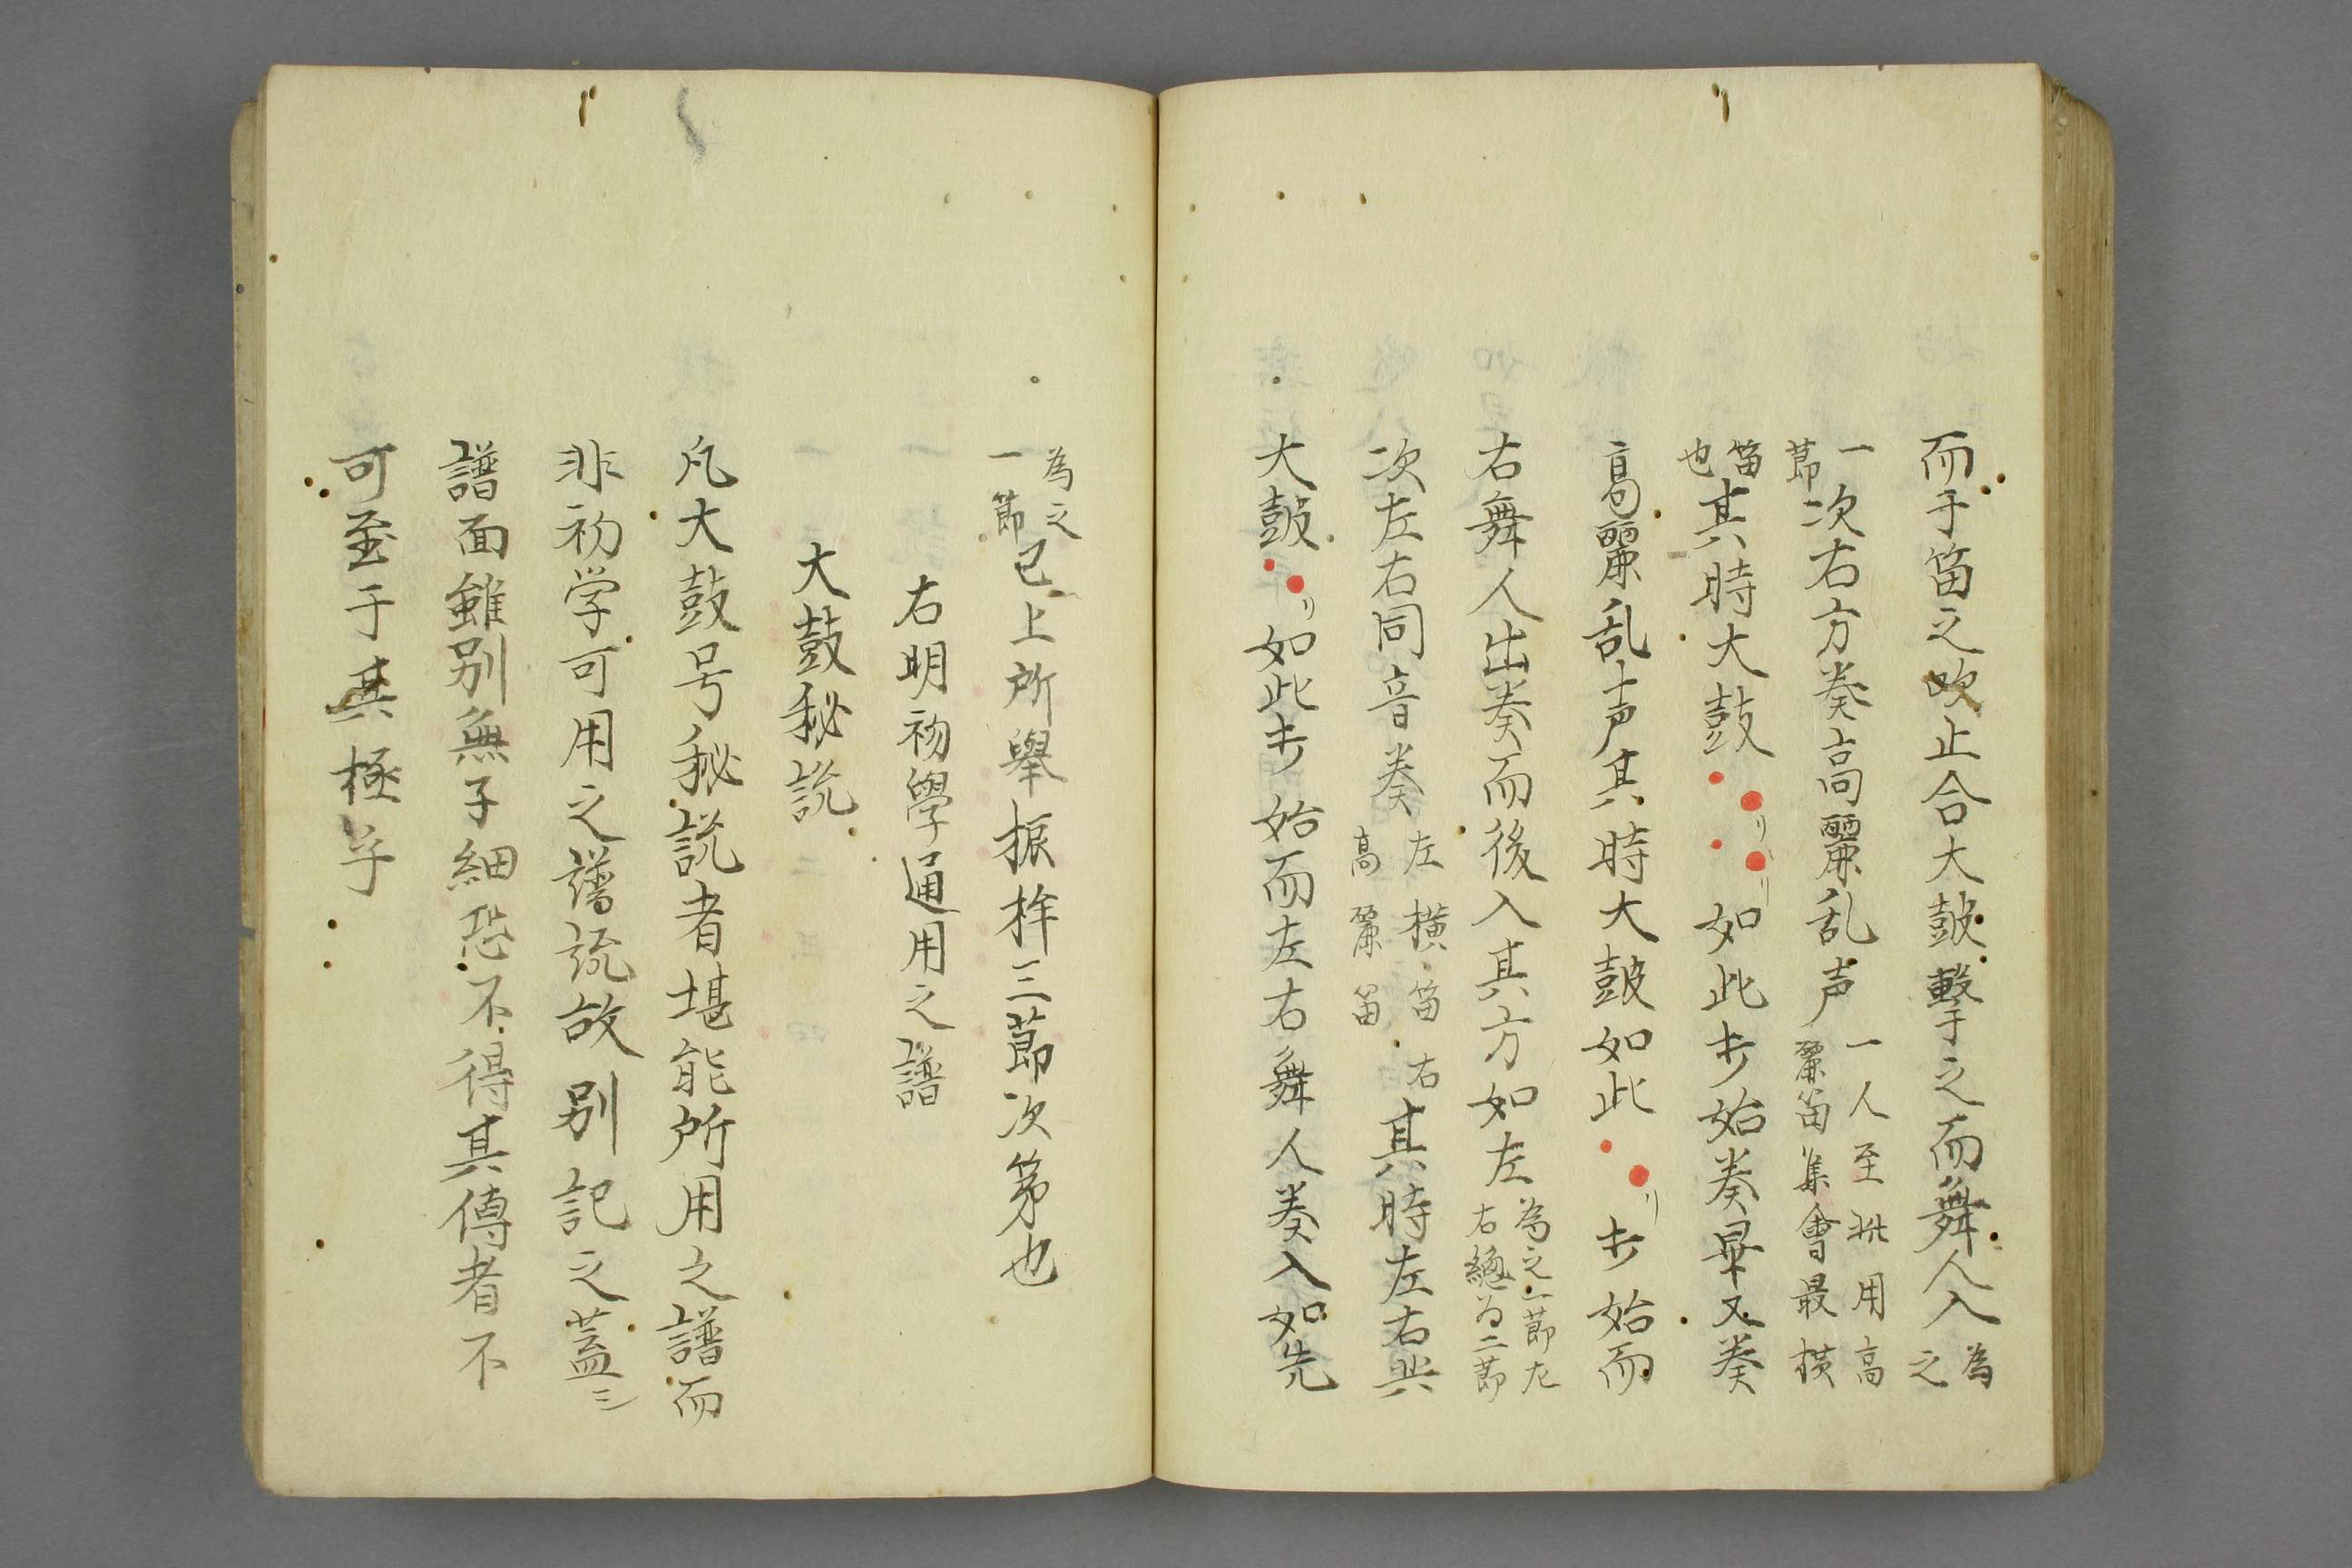 而于笛之吹止合大鼓擊之而舞人入為之
一節次右方奏高麗乱声一人至用高麗笛集會最横
笛也其時大鼓如此歩始奏畢又奏
高麗乱声其時大鼓如此歩始而
右舞人出奏而後入其方如左為之一節左右總為二節
次左右同音奏左横笛右高麗笛其時左右共
大鼓如此歩始而左右舞人奏入如先
為之一節已上所舉振桙三節次第也
右明初學通用之譜
大鼓秘説
凡大鼓号秘説者堪能所用之譜而
非初学可用之譜説故別記之蓋
譜面雖別無子細恐不得其傳者不
可至于其極乎